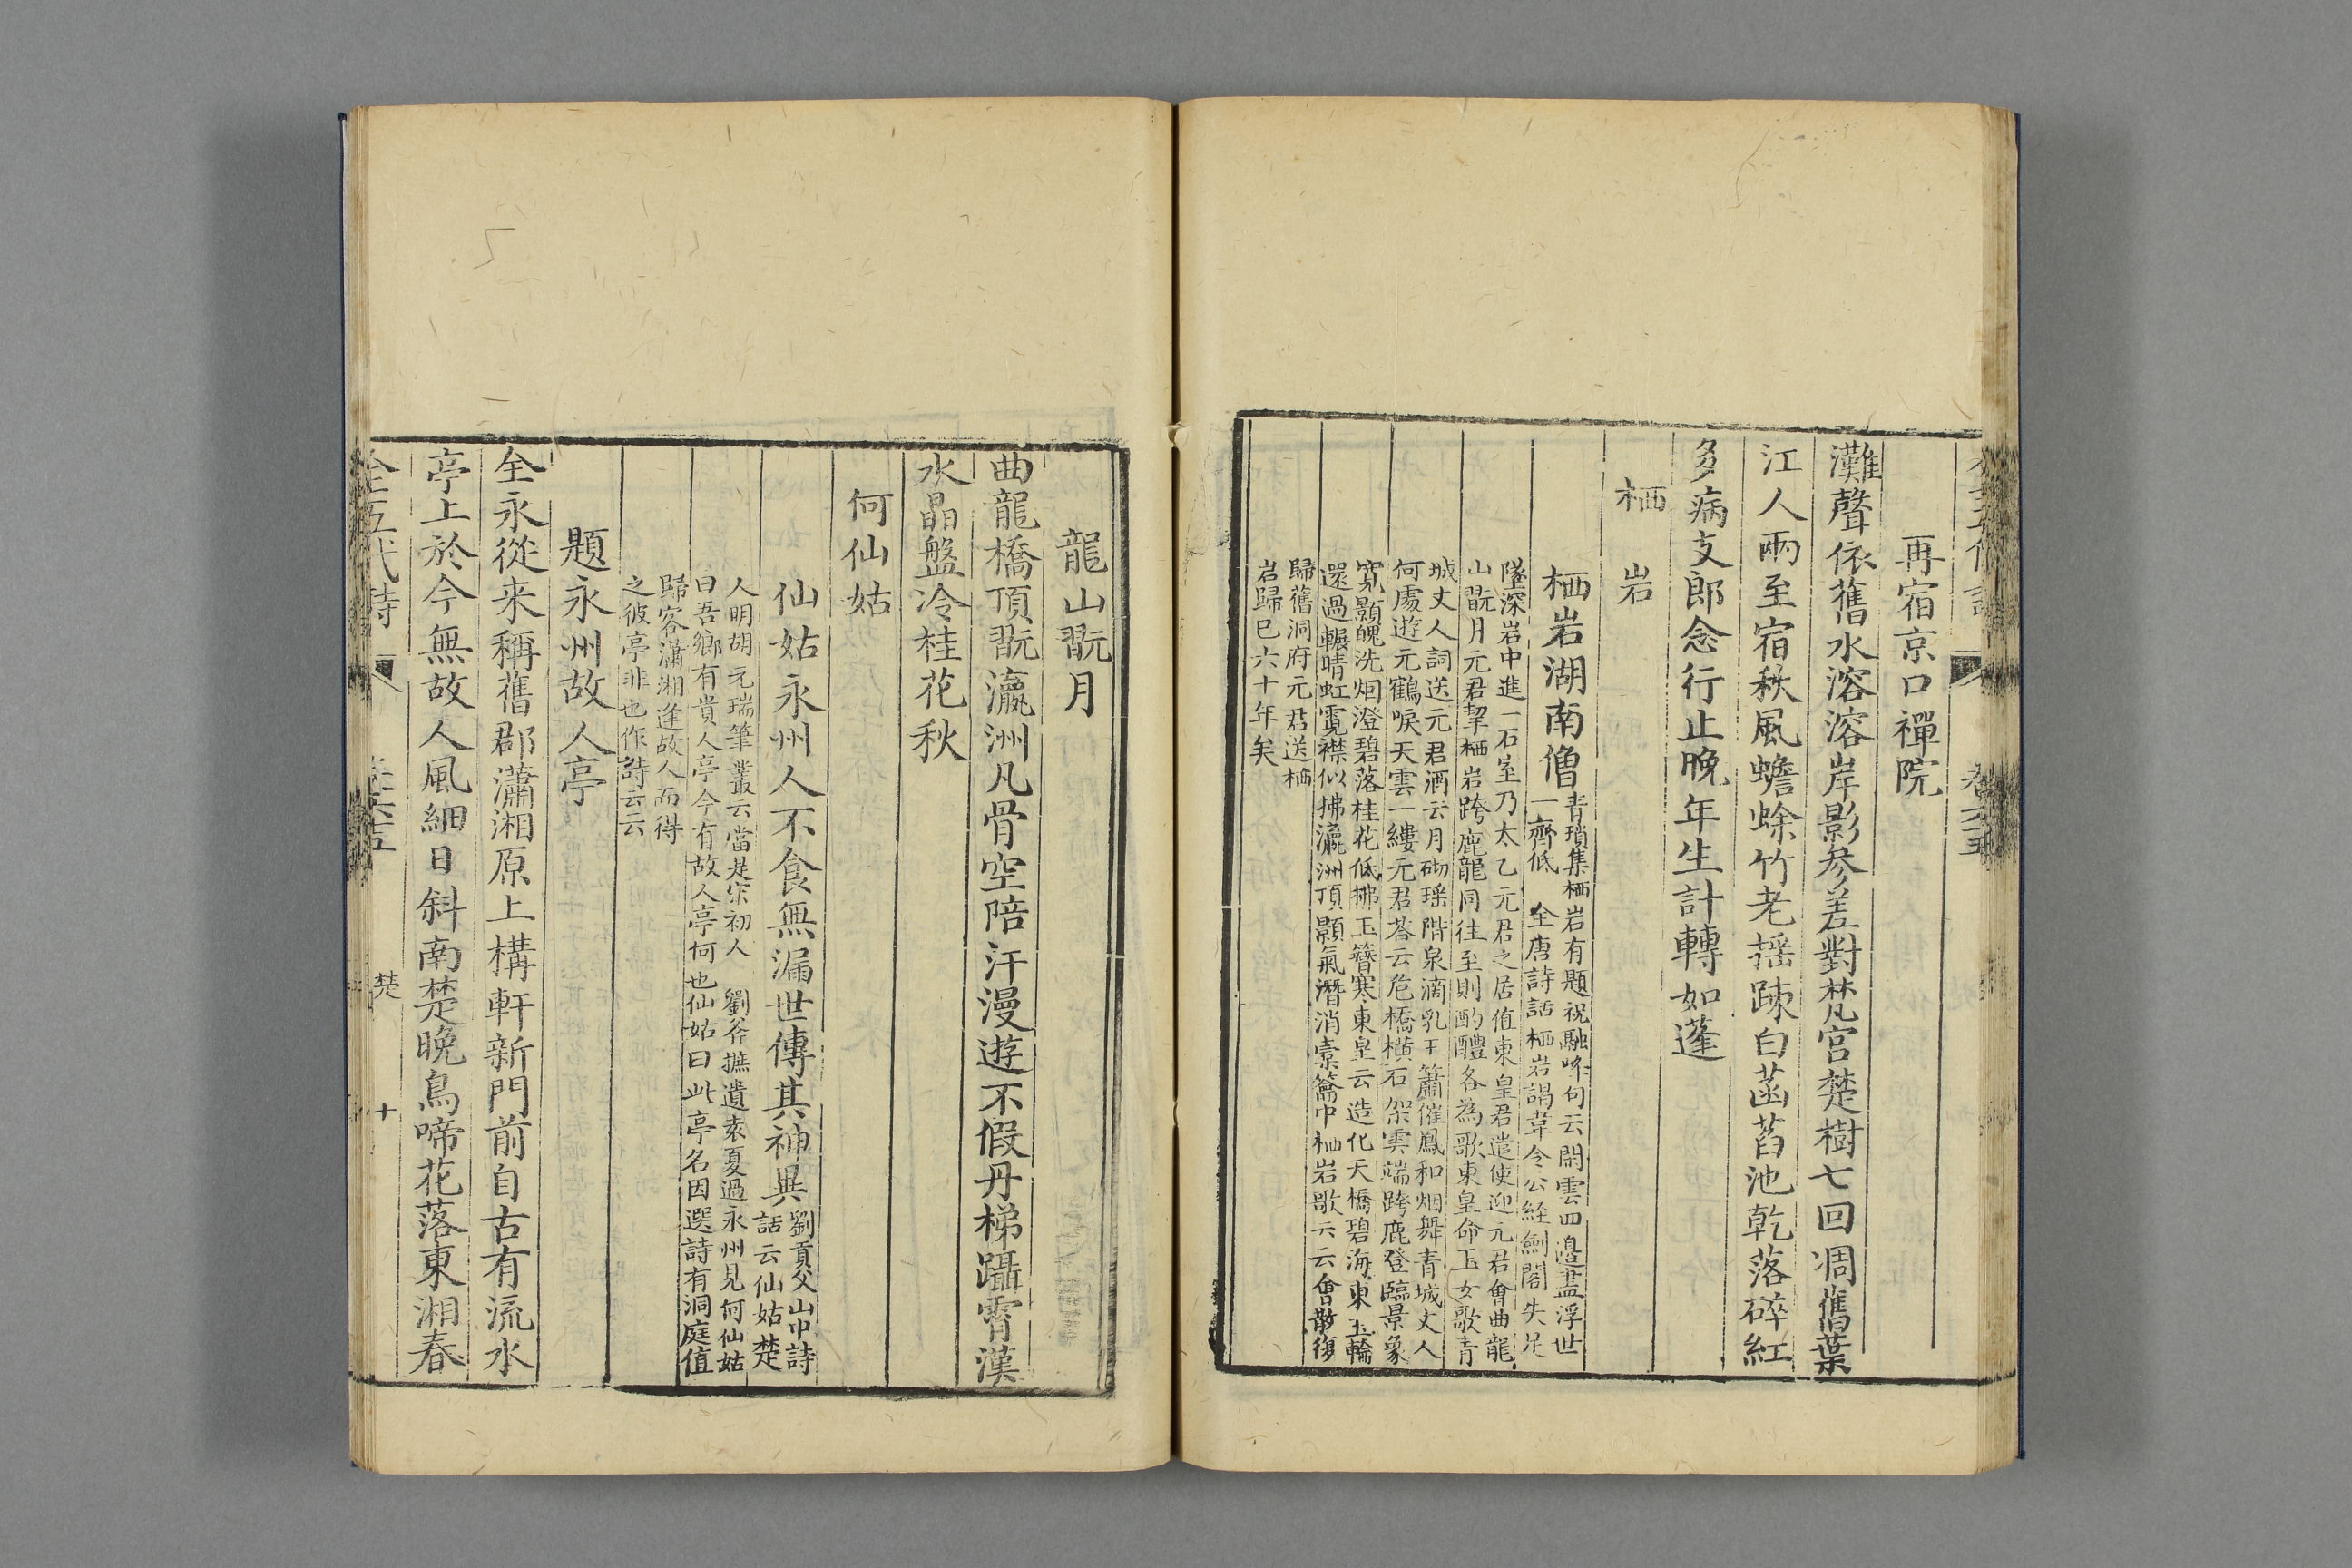 再宿京口禪院
灘聲依舊水溶溶岸影參差對梵宮楚樹七回凋舊葉
江人兩至宿秋風蟾蜍竹老摇踈白菡萏池乾落碎紅
多病支郎念行止晚年生計轉如蓬
栖岩
栖岩湖南僧
青瑣集栖岩有題祝融峰句云閑雲四邉盡浮世
一齊低 全唐詩話栖岩謁韋令公經劍閣失足
墜深岩中進一石室乃太乙元君之居值東皇君遣使迎元君會曲龍
山翫月元君挈栖岩跨鹿龍同往至則酌醴各為歌東皇命玉女歌青
城丈人詞送元君酒云月砌瑶階泉滴乳玉簫催鳳和烟舞青城丈人
何處遊元鶴唳天雲一縷元君荅云危橋横石架雲端跨鹿登臨景象
寬顥魄洗烟澄碧落桂花低拂玉簪寒東皇云造化天橋碧海東玉輪
還過輾晴虹霓襟似拂瀛洲頂顥氣潛消橐籥中栖岩歌云云會散復
歸舊洞府元君送栖
岩歸巳六十年矣
龍山翫月
曲龍橋頂翫瀛洲凡骨空陪汗漫遊不假丹梯躡霄漢
水晶盤冷桂花秋
何仙姑
仙姑永州人不食無漏世傳其神異
劉貢父山中詩
話云仙姑楚
人明胡元瑞筆叢云當是宋初人 劉斧摭遺袁夏過永州見何仙姑
曰吾鄉有貴人亭今有故人亭何也仙姑曰此亭名因選詩有洞庭值
歸客瀟湘逢故人而得
之彼亭非也作詩云云
題永州故人亭
全永從来稱舊郡瀟湘原上構軒新門前自古有流水
亭上於今無故人風細日斜南楚晚鳥啼花落東湘春
全五代詩 卷六十五 楚 十